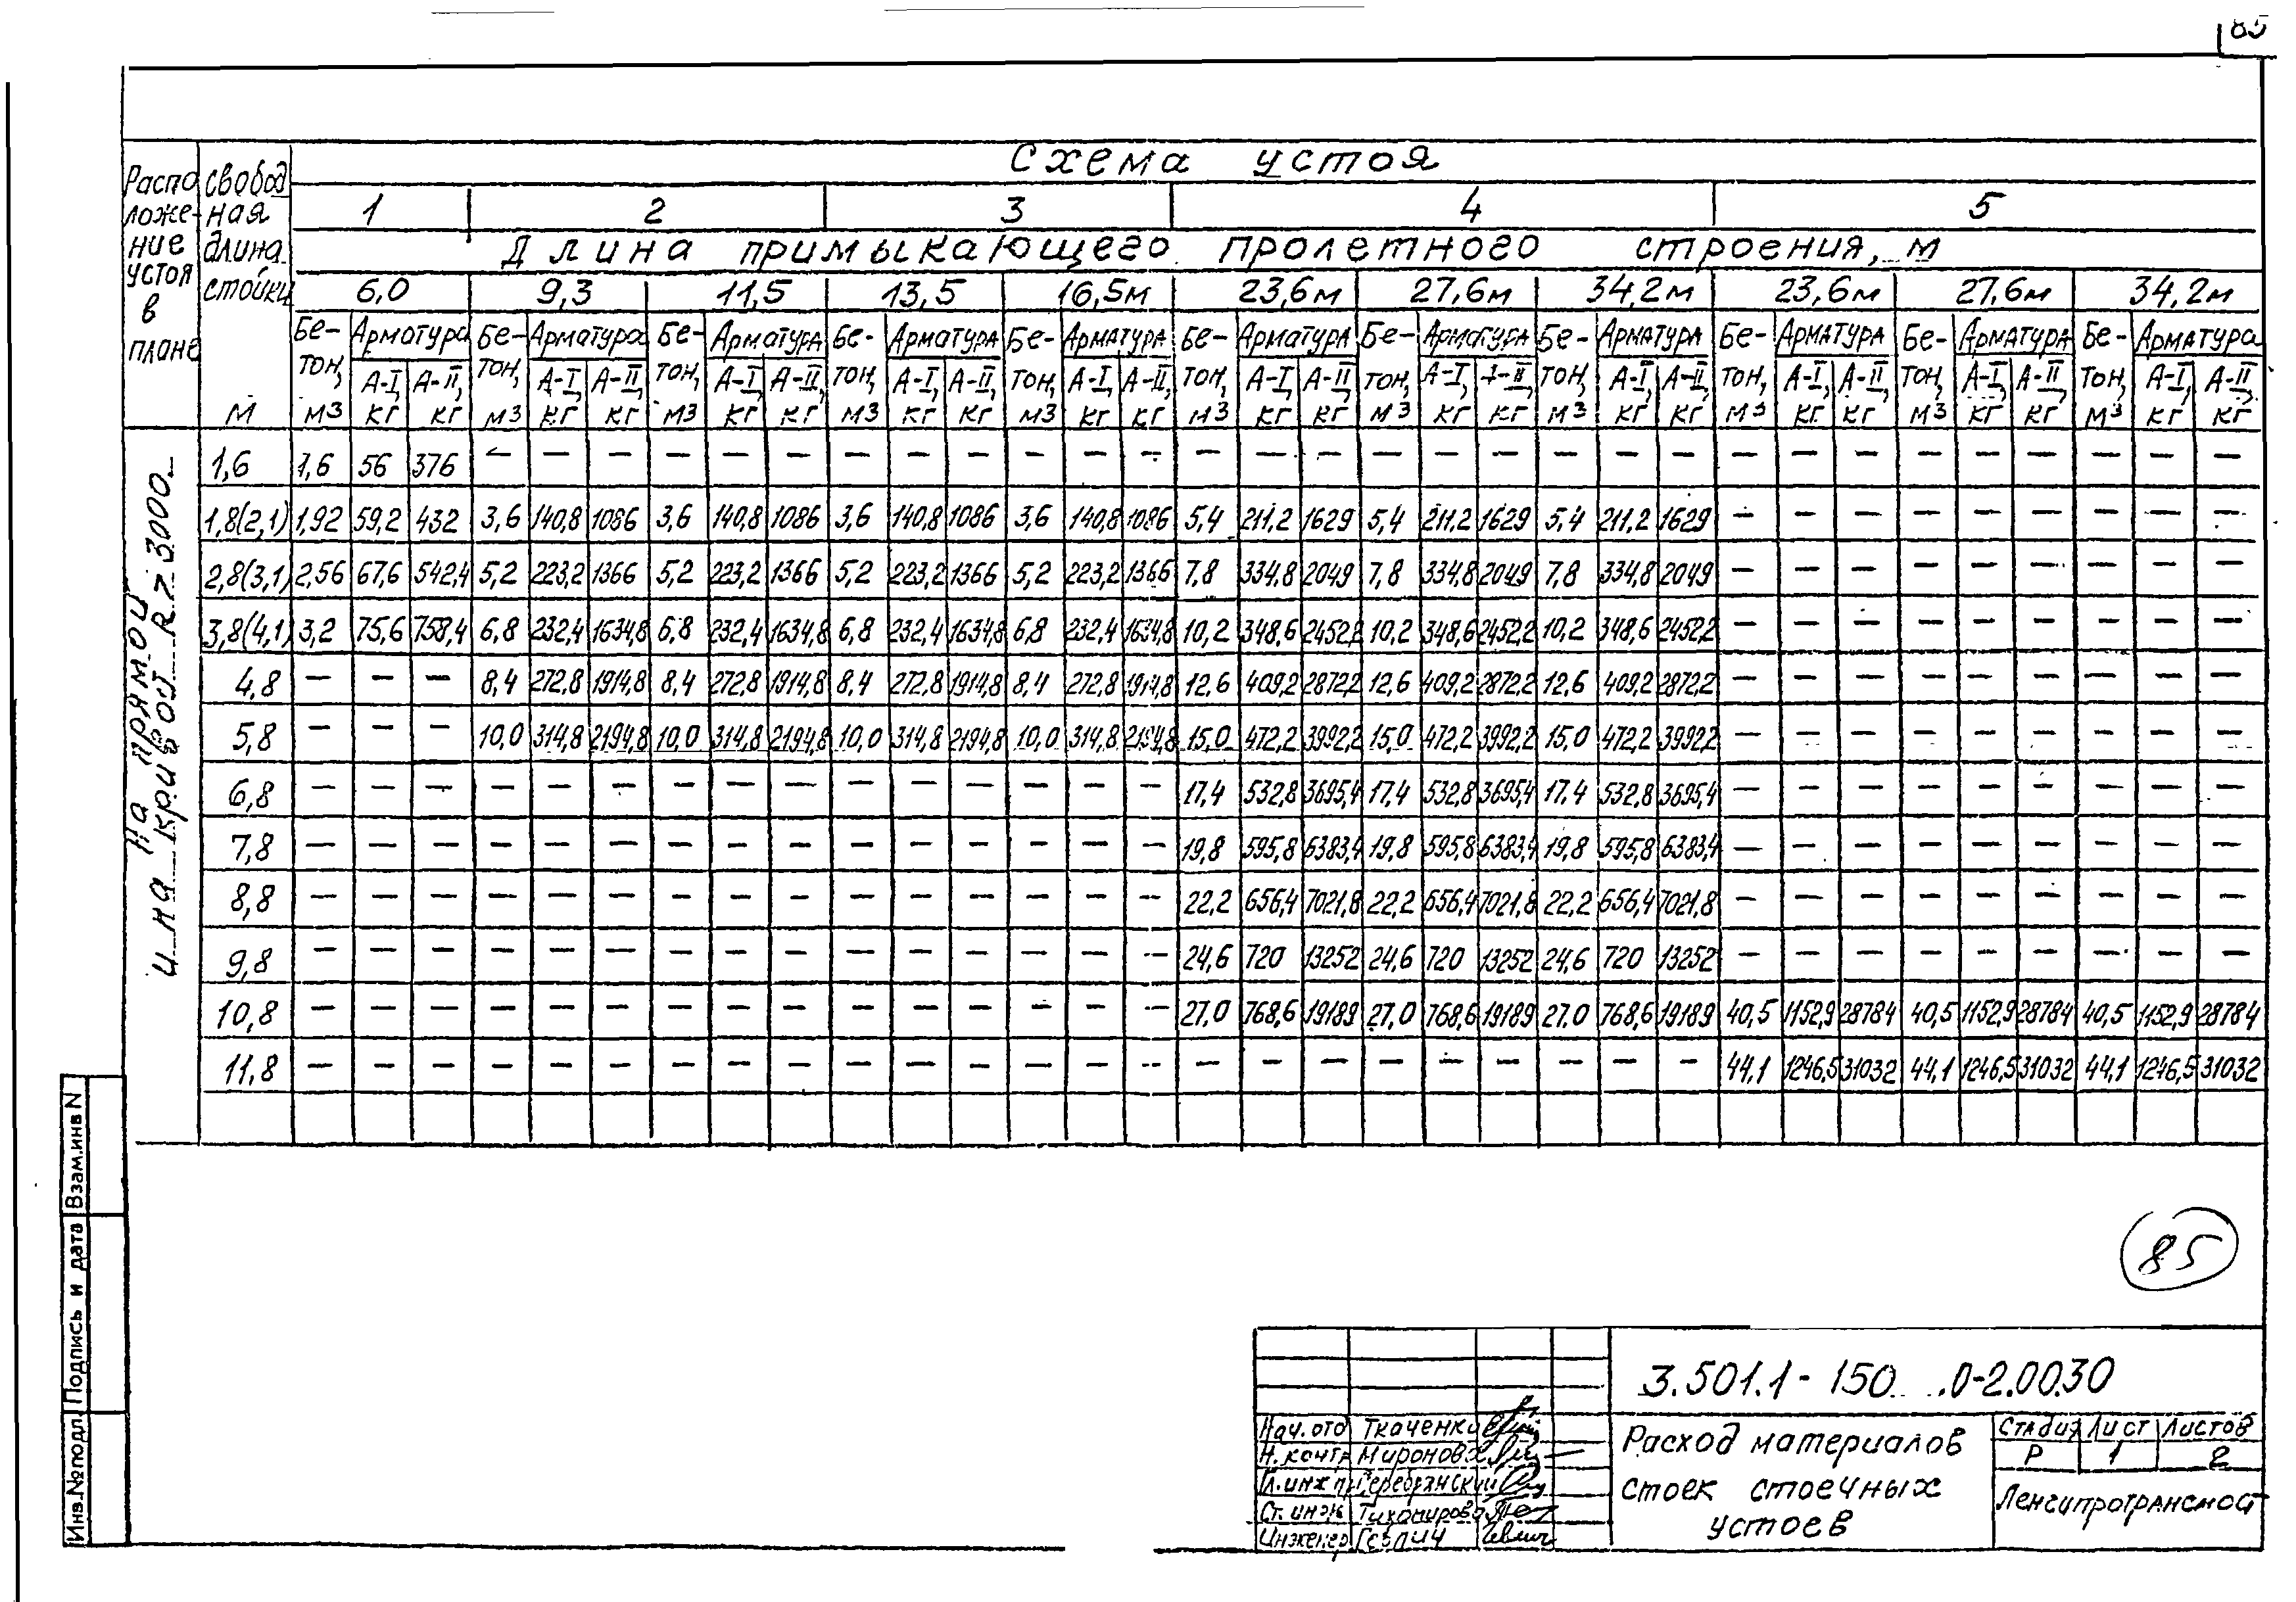 85
Распо ложе- ние устоя в плане
свобод ная длина стойки м
Схема устоя
1 2 3 4 5
Длина примыкающего пролетного строения, м
6,0 9,3 11,5 13,5 16,5м 23,6м 27,6м 34,2м 23,6м 27,6м 34,2м
Бе- Арматура Бе- Арматура Бе- Арматура Бе- Арматура Бе- Арматура Бе- Арматура Бе- Арматура Бе- Арматура Бе- Арматура Бе- Арматура Бе- Арматура
тон, А-I, А-II, тон, А-I, А-II, тон, А-I, А-II, тон, А-I, А-II, тон, А-I, А-II, тон, А-I, А-II, тон, А-I, I-II, тон, А-I, А-II, тон, А-I, А-II, тон, А-I, А-II, тон, А-I, А-II,
м3 кг кг м3 кг кг м3 кг кг м3 кг кг м3 кг кг м3 кг кг м3 кг кг м3 кг кг м3 кг кг м3 кг кг м3 кг кг
На прямой
и на кривой R ≥ 3000
1,6 1,6 56 376 — — — — — — — — — — — — — — — — — — — — — — — — — — — — — —
1,8(2,1) 1,92 59,2 432 3,6 140,8 1086 3,6 140,8 1086 3,6 140,8 1086 3,6 140,8 1086 5,4 211,2 1629 5,4 211,2 1629 5,4 211,2 1629 — — — — — — — — —
2,8(3,1) 2,56 67,6 542,4 5,2 223,2 1366 5,2 223,2 1366 5,2 223,2 1366 5,2 223,2 1366 7,8 334,8 2049 7,8 334,8 2049 7,8 334,8 2049 — — — — — — — — —
3,8(4,1) 3,2 75,6 758,4 6,8 232,4 1634,8 6,8 232,4 1634,8 6,8 232,4 1634,8 6,8 232,4 1634,8 10,2 348,6 2452,2 10,2 348,6 2452,2 10,2 348,6 2452,2 — — — — — — — — —
4,8 — — — 8,4 272,8 1914,8 8,4 272,8 1914,8 8,4 272,8 1914,8 8,4 272,8 1914,8 12,6 409,2 2872,2 12,6 409,2 2872,2 12,6 409,2 2872,2 — — — — — — — — —
5,8 — — — 10,0 314,8 2194,8 10,0 314,8 2194,8 10,0 314,8 2194,8 10,0 314,8 2194,8 15,0 472,2 3992,2 15,0 472,2 3992,2 15,0 472,2 3992,2 — — — — — — — — —
6,8 — — — — — — — — — — — — — — — 17,4 532,8 3695,4 17,4 532,8 3695,4 17,4 532,8 3695,4 — — — — — — — — —
7,8 — — — — — — — — — — — — — — — 19,8 595,8 6383,4 19,8 595,8 6383,4 19,8 595,8 6383,4 — — — — — — — — —
8,8 — — — — — — — — — — — — — — — 22,2 656,4 7021,8 22,2 656,4 7021,8 22,2 656,4 7021,8 — — — — — — — — —
9,8 — — — — — — — — — — — — — — — 24,6 720 13252 24,6 720 13252 24,6 720 13252 — — — — — — — — —
10,8 — — — — — — — — — — — — — — — 27,0 768,6 19189 27,0 768,6 19189 27,0 768,6 19189 40,5 1152,9 28784 40,5 1152,9 28784 40,5 1152,9 28784
11,8 — — — — — — — — — — — — — — — — — — — — — — — — 44,1 1246,5 31032 44,1 1246,5 31032 44,1 1246,5 31032
85
Инв.№подл. Подпись и дата Взам.инв N
3.501.1-150 .0-2.0030
Нач. отд Ткаченко
Н. контр Миронова
Гл.инж пр Серебрянский
Ст. инж Тихомирова
Инженер Гевлич
Расход материалов
стоек стоечных
устоев
Стадия Лист Листов
Р 1 2
Ленгипротрансмост